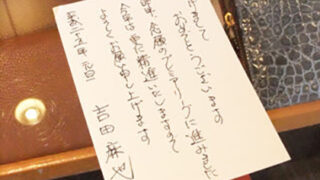 けまして
おめでとうございます
昨年、念願のプレミアリーグに進みました
今年は更に精進いたしますので
よろしくお願い申し上げます
二五年 元旦
吉田 麻也